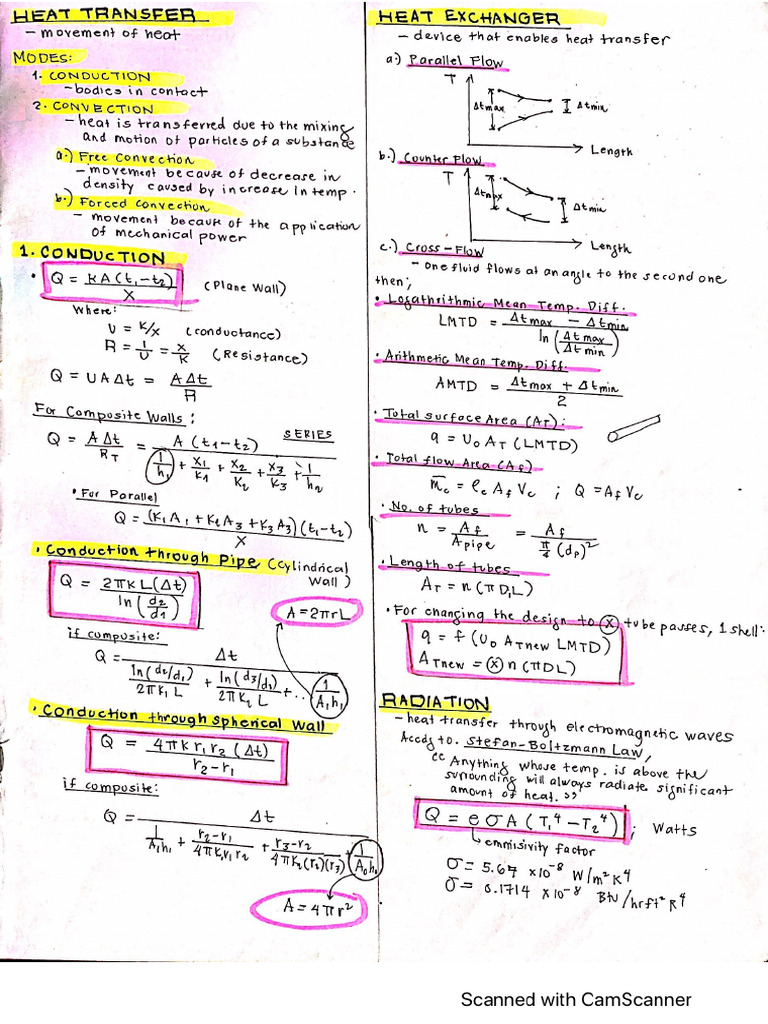 HEAT TRANSFER
- movement of heat
MODES:
1. CONDUCTION
- bodies in contact
2. CONVECTION
- heat is transferred due to the mixing
and motion of particles of a substance
a.) Free Convection
- movement because of decrease in
density caused by increase in temp.
b.) Forced Convection
- movement because of the application
of mechanical power
1. CONDUCTION
• Q = kA(t₁-t₂)/x (Plane Wall)
Where:
U = K/x (conductance)
R = 1/U = x/K (Resistance)
Q = UAΔt = AΔt/R
For Composite Walls:
SERIES
Q = AΔt/R_T = A(t₁-t₂)/(1/h₁ + x₁/k₁ + x₂/K₂ + x₃/k₃ + 1/h₂)
• For Parallel
Q = (K₁A₁+K₂A₃+K₃A₃)(t₁-t₂)/x
• Conduction through Pipe (Cylindrical
Wall)
Q = 2πKL(Δt)/ln(d₂/d₁)
A=2πrL
if composite:
Q = Δt/(ln(d₂/d₁)/2πK₁L + ln(d₃/d₁)/2πK₂L + .. 1/A₁h₁)
• Conduction through spherical Wall
Q = 4πKr₁r₂(Δt)/r₂-r₁
if composite:
Q = Δt/(1/A₁h₁ + r₂-r₁/4πK₁r₁r₂ + r₃-r₂/4πK₂(r₂)(r₃) + 1/A₀h₀)
A=4πr²
HEAT EXCHANGER
- device that enables heat transfer
a.) Parallel Flow
T
Δtmax
Δtmin
Length
b.) Counter Flow
T
Δtmax
Δtmin
Length
c.) Cross-Flow
- One fluid flows at an angle to the second one
then;
• Logathrithmic Mean Temp. Diff.
LMTD = Δtmax - Δtmin/ln(Δtmax/Δtmin)
• Arithmetic Mean Temp. Diff.
AMTD = Δtmax + Δtmin/2
• Total surface Area (A_T):
q = U₀A_T(LMTD)
• Total flow Area (A_f)
ṁ_c = ρ_c A_f V_c ; Q = A_f V_c
• No. of tubes
n = A_f/A_pipe = A_f/(π/4 (d_p)²)
• Length of tubes
A_T = n(πD₁L)
• For changing the design to (x) tube passes, 1 shell:
q = f(U₀ A_Tnew LMTD)
A_Tnew = (x) n(πDL)
RADIATION
- heat transfer through electromagnetic waves
Accdg to. Stefan-Boltzmann Law,
"Anything whose temp. is above the
surrounding will always radiate significant
amount of heat."
Q = eσA(T₁⁴-T₂⁴) ; Watts
emmisivity factor
σ = 5.67 x10⁻⁸ W/m²K⁴
σ = 0.1714 x10⁻⁸ Btu/hrft²R⁴
Scanned with CamScanner